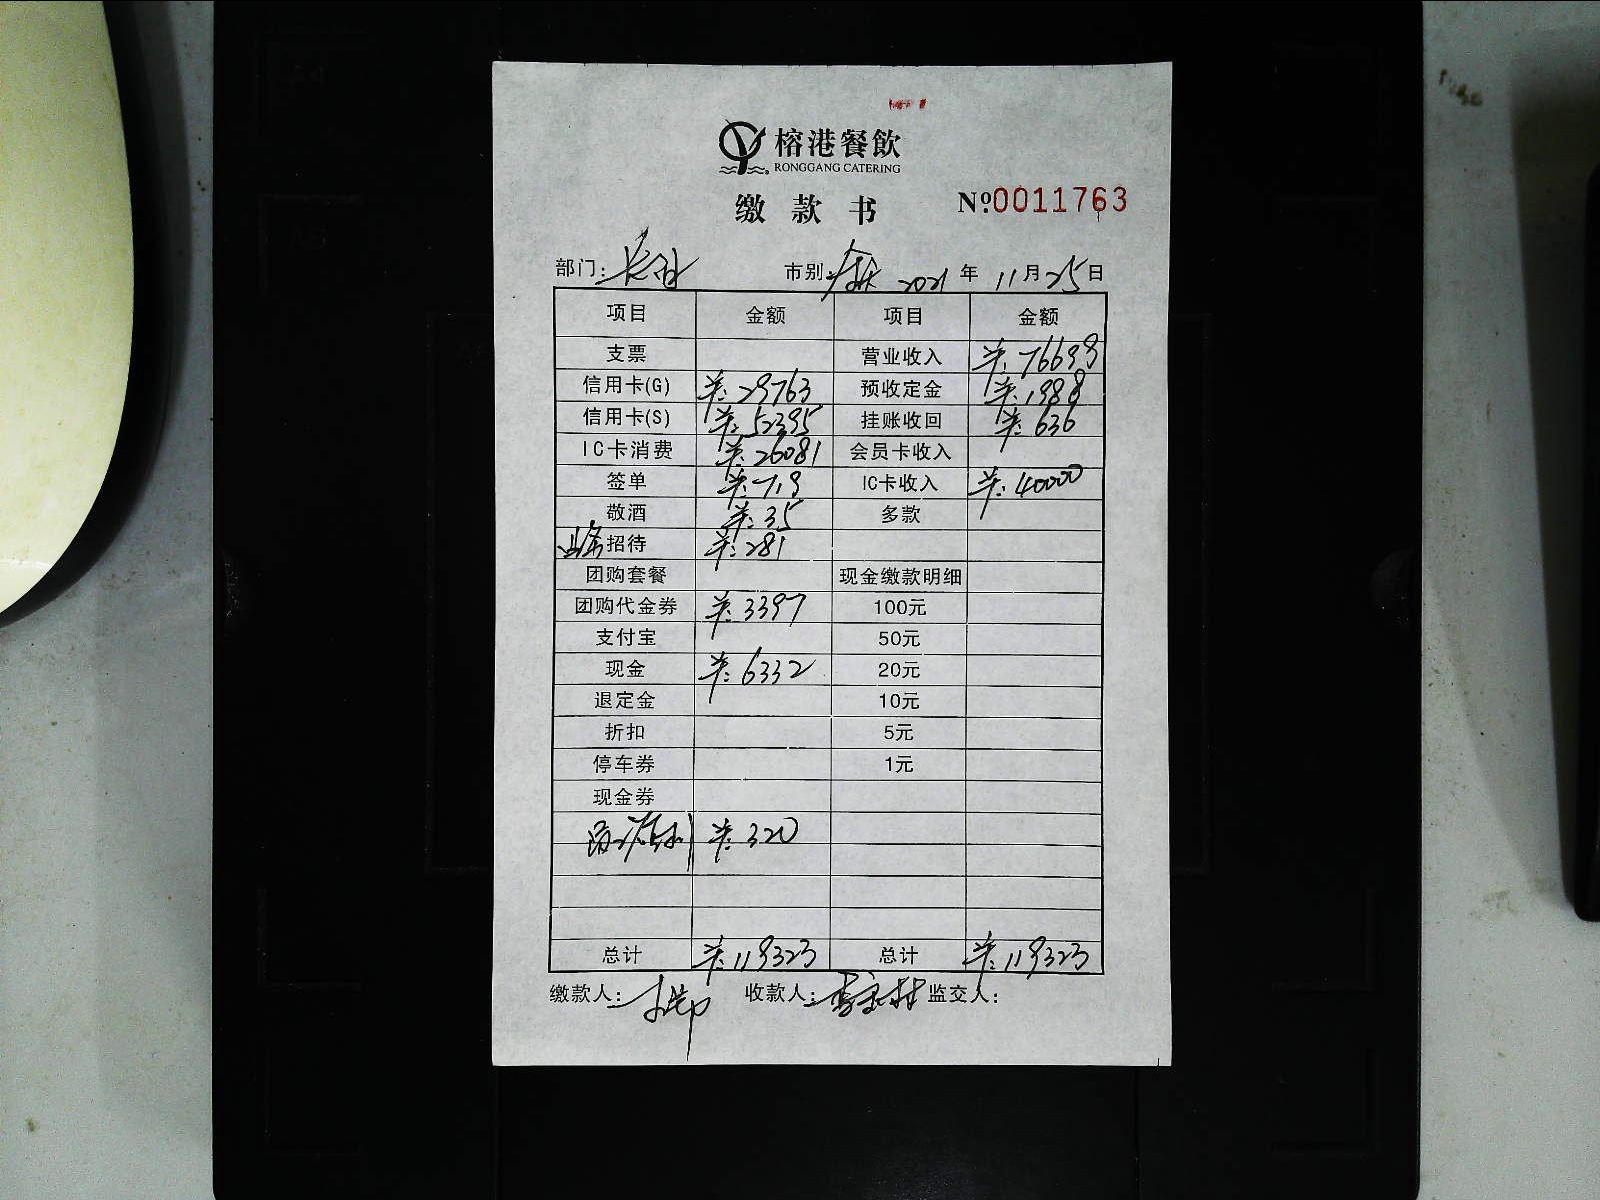 榕港餐飲
RONGGANG CATERING
缴款书 №0011763
部门: 市别: 2021 年 11 月 25 日
项目 金额 项目 金额
支票 营业收入 ¥:76699
信用卡(G) ¥:29763 预收定金 ¥:1988
信用卡(S) ¥:52395 挂账收回 ¥:636
IC卡消费 ¥:26081 会员卡收入
签单 ¥:719 IC卡收入 ¥:40000
敬酒 ¥:35 多款
业务招待 ¥:281
团购套餐 现金缴款明细
团购代金券 ¥:3397 100元
支付宝 50元
现金 ¥:6332 20元
退定金 10元
折扣 5元
停车券 1元
现金券
¥:320
总计 ¥:119323 总计 ¥:119323
缴款人: 收款人: 监交人: